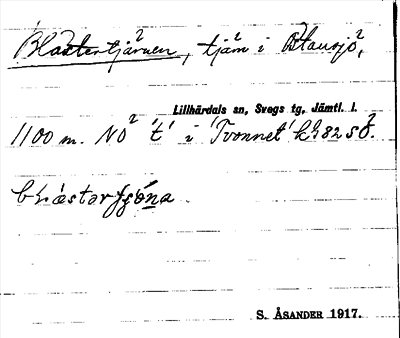 Blästertjärnen, tjärn i Blausjö,
Lillhärdals sn, Svegs tg, Jämtl. l.
1100 m. NO 't' i 'Tvonnet' k 82 SÖ.
blæstar
S. ÅSANDER 1917.